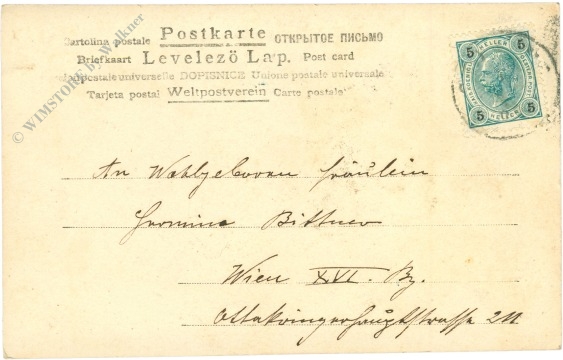 Cartolina postale Postkarte ОТКРЫТОЕ ПИСЬМО
Briefkaart Levelezö Lap. Post card
postale universelle DOPISNICE Unione postale universale
Tarjeta postal Weltpostverein Carte postale
5 5
HELLER
5 5
HELLER
© WIMSTORE by Walkner
An Wohlgeboren Fräulein
Hermine Bittner
Wien XVI. Bz.
Ottakringerhauptstrasse